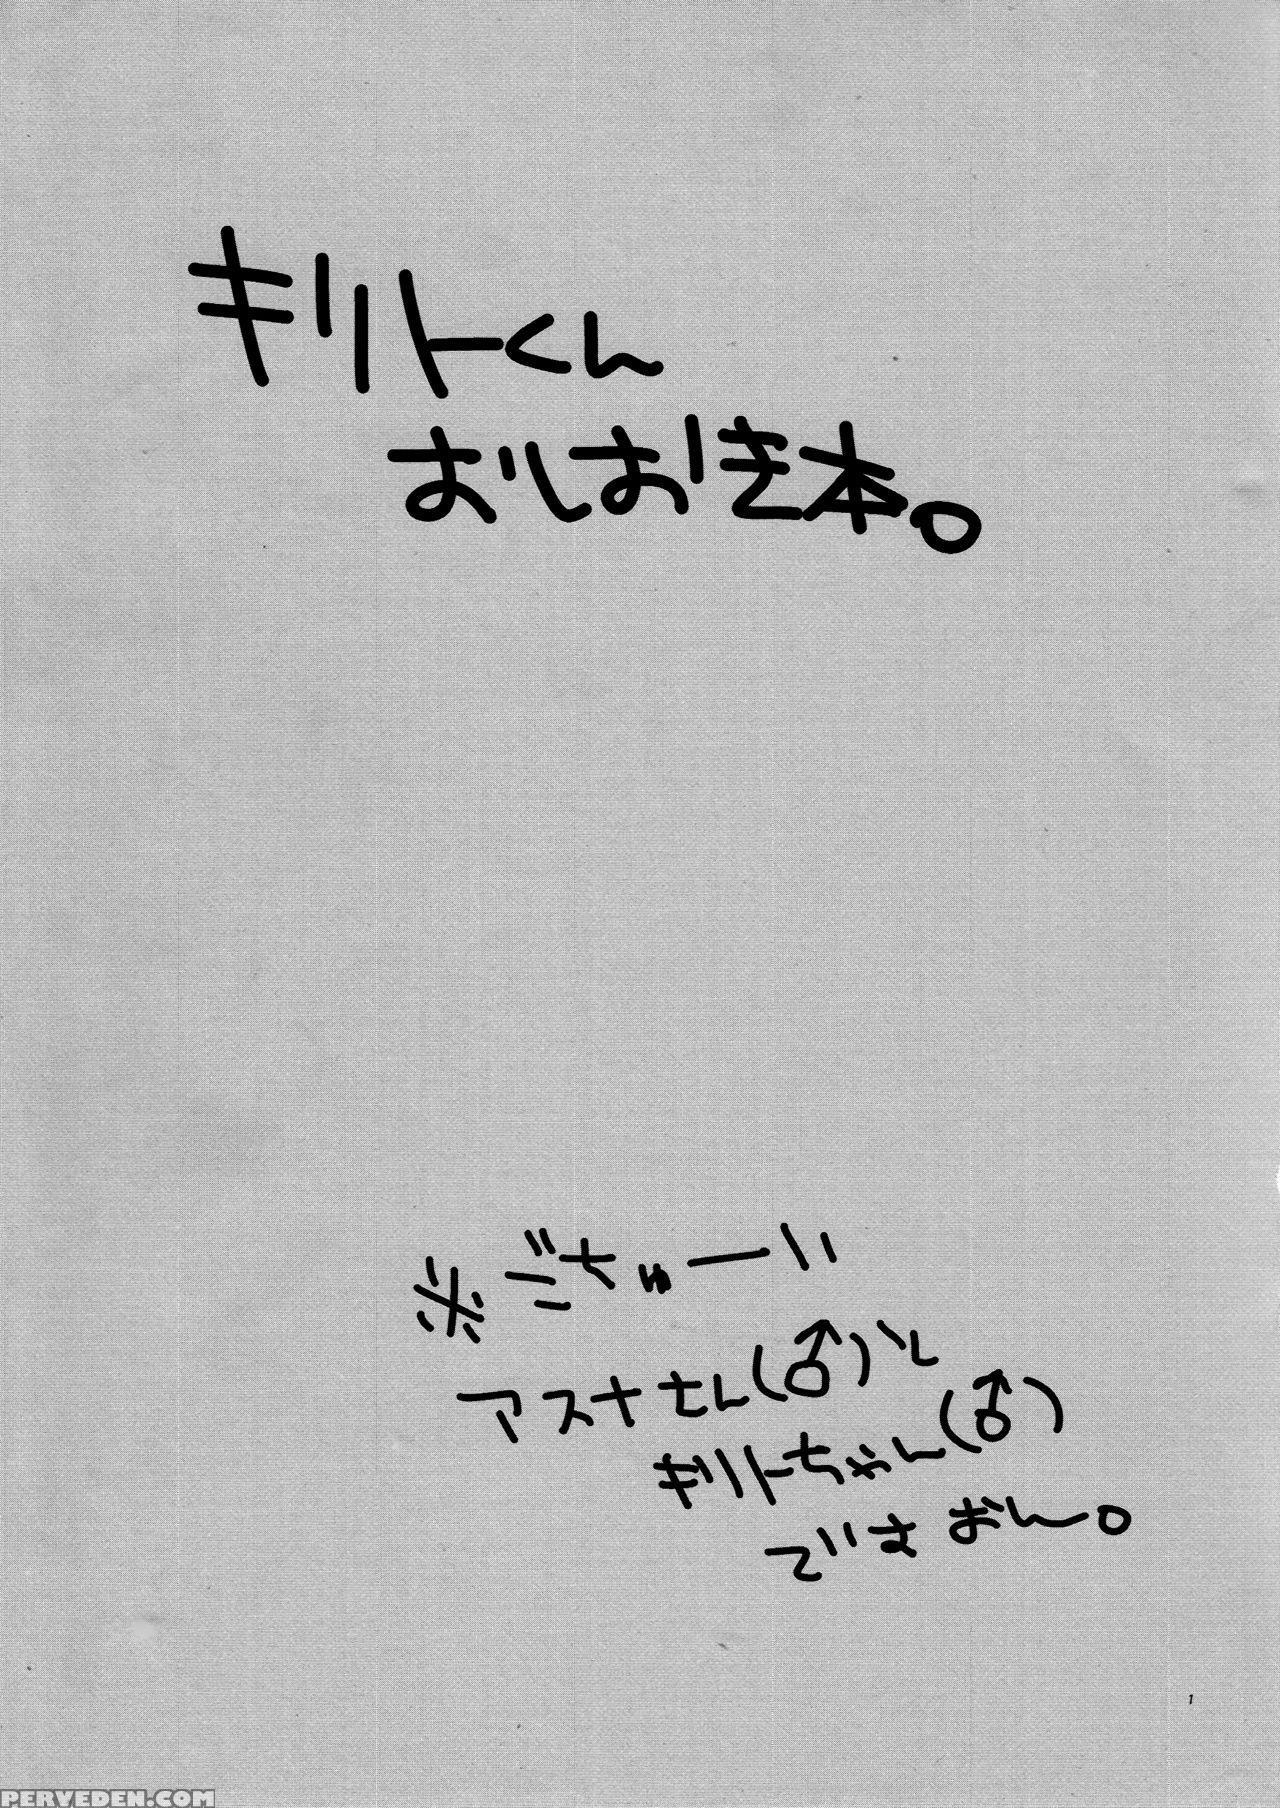 キリトくん
おしおき本。
※ごちゅーい
アスナさん(♂)と
キリトちゃん(♂)
でさおん。
1
PERVEDEN.COM